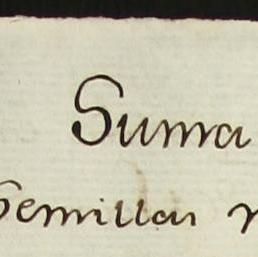 Suma
Semillas